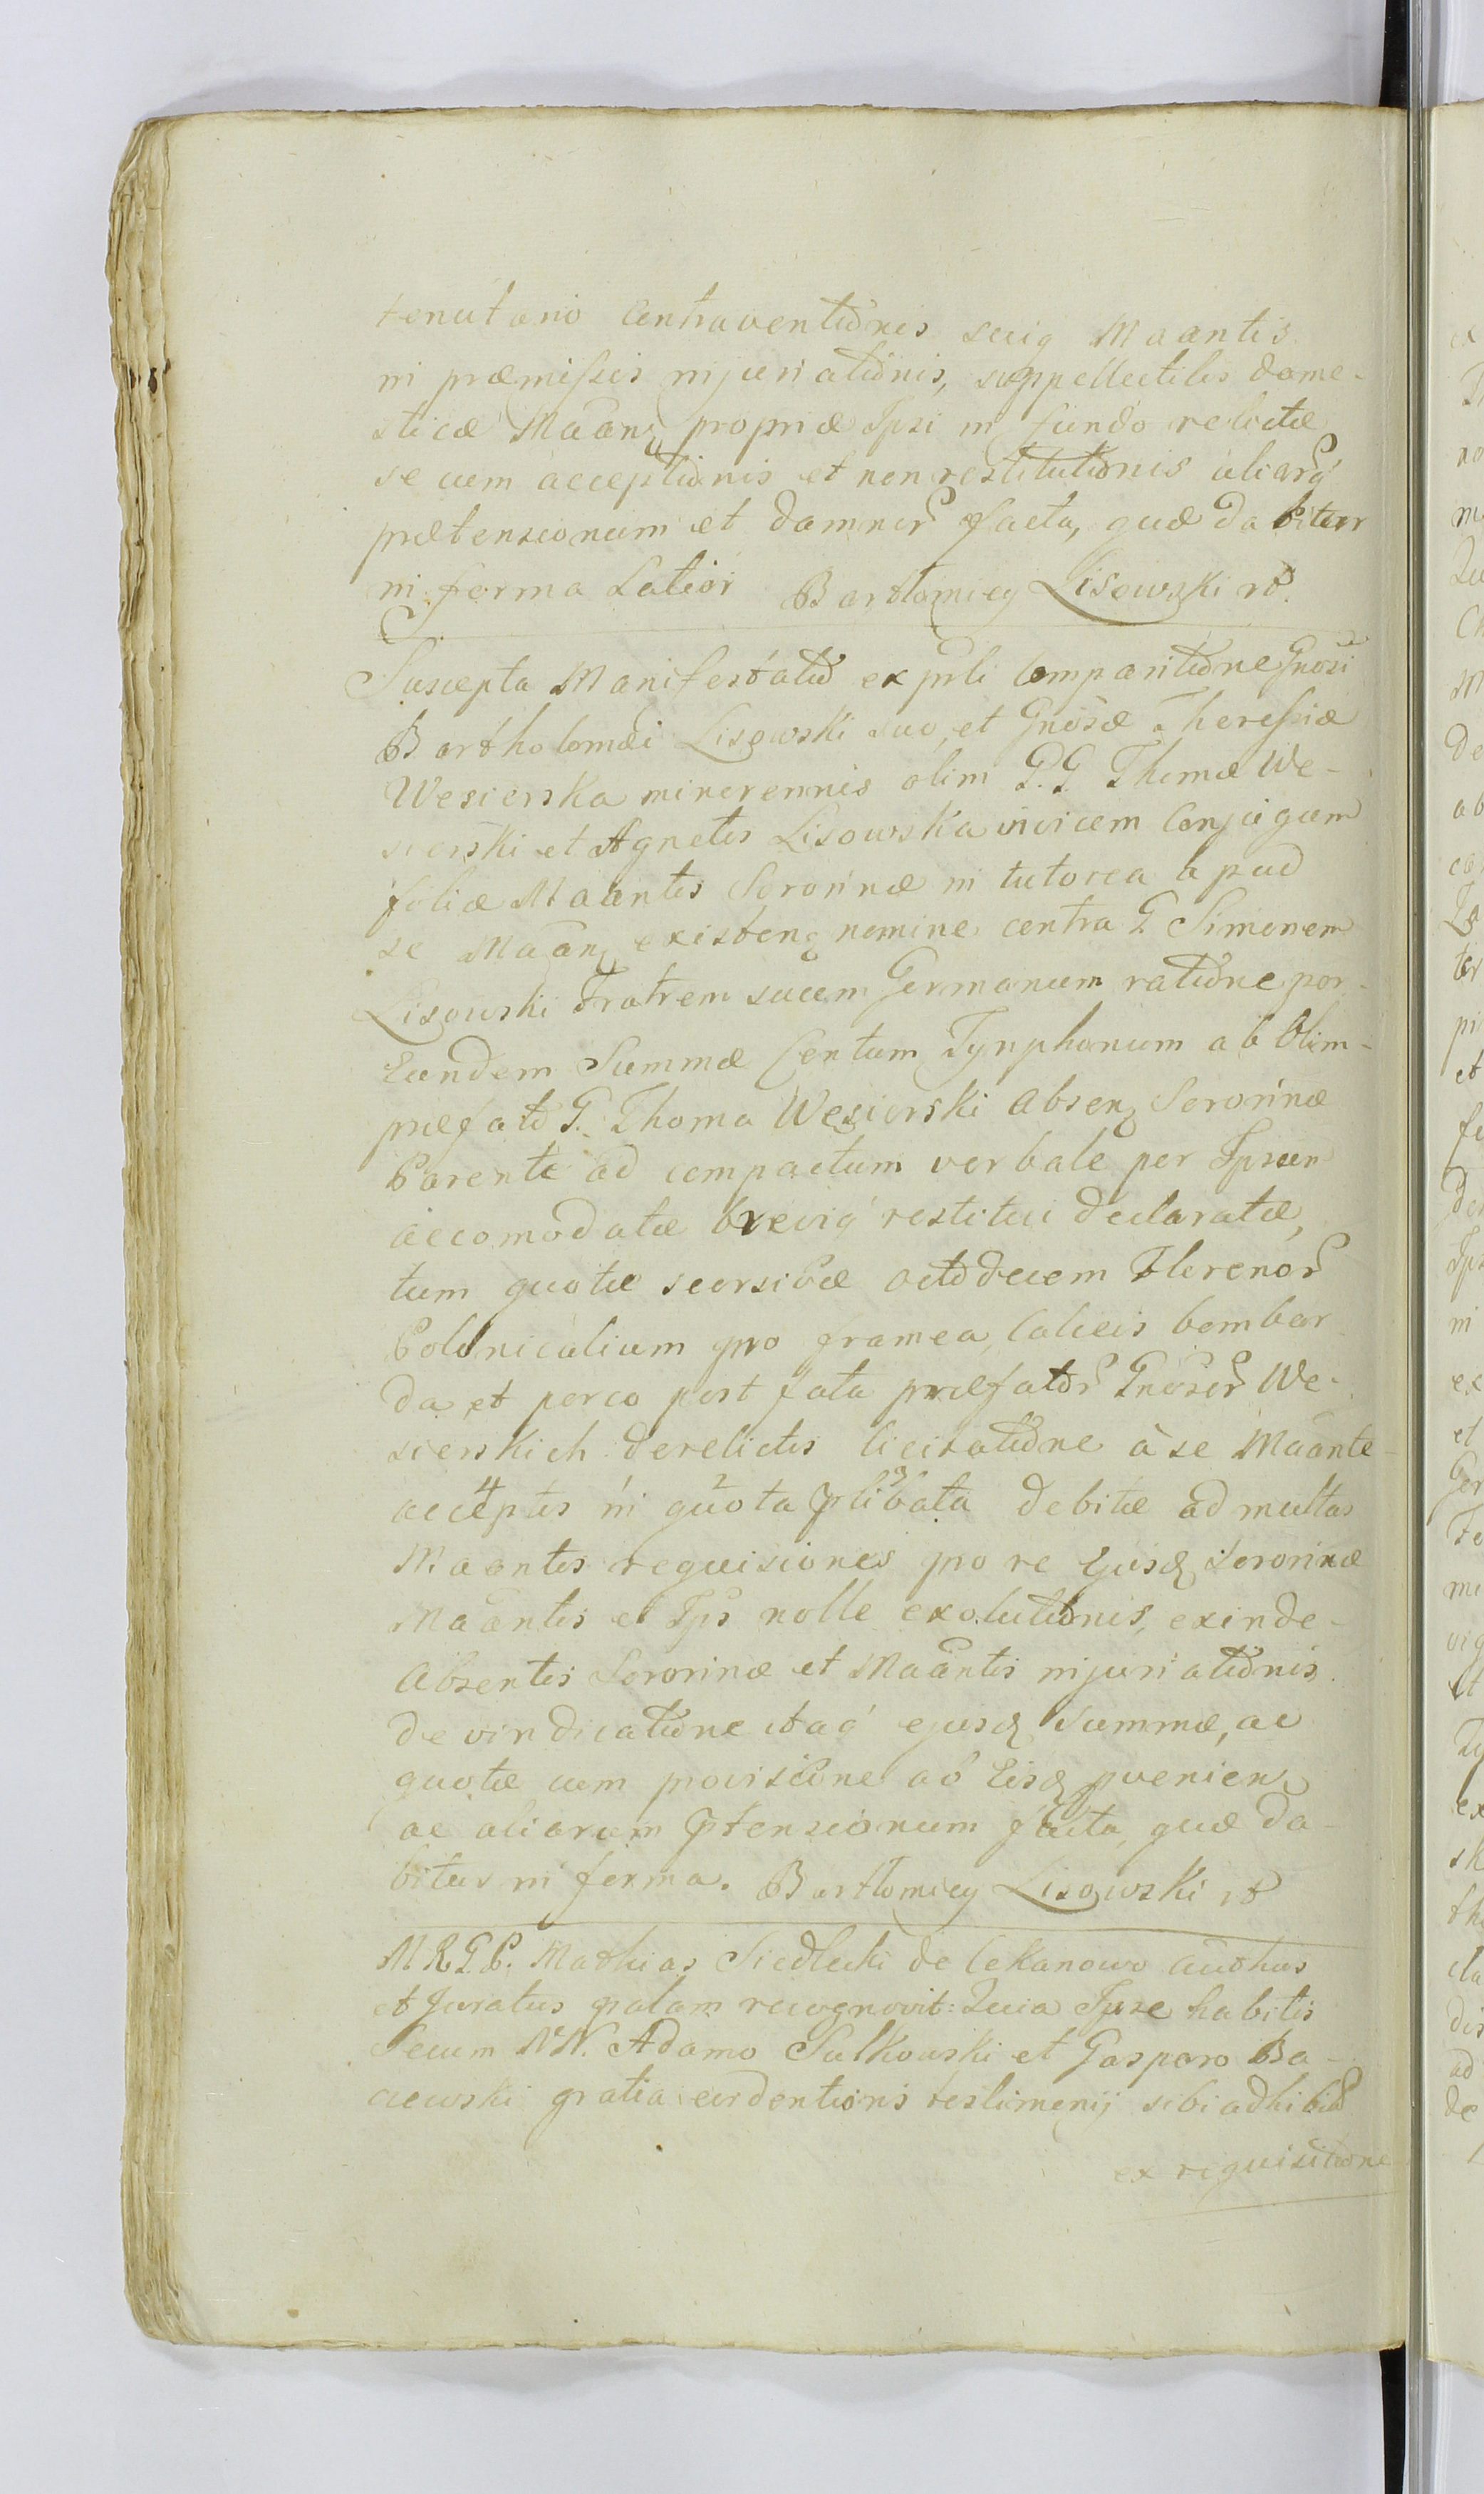 tenutario Contraventiōnis suiq Maantis
in præmissis injuriatiōnis, suppellectilis dome-
sticæ Maanz propriæ Ipsi in fundo relictæ
secum acceptiōnis et non restitutiōnis aliarq
prætensionum et damnor facta, quæ dabitur
in forma Latiori Bartłomiey Lisowski rð.
Suscepta Manifestatiō ex pnli Comparitiōne Gnosi
Bartholomæi Lisowski suo, et Gnosæ Theressiæ
Wesierska minorennis olim G.G. Thomæ We-
sierski et Agnetis Lisowska invicem Conjugum
filiæ Maantis Sororinæ in tutorea apud
se Maanz existenz nomine contra G Simonem
Lisowski Fratrem suum Germanum ratiōne per
Eundem Summæ Centum Tynphonum ab Olim-
præfatō G. Thoma Wesierski Absenz Sororinæ
Parente ad compactum verbale per Ipsum
accomodatæ breviq restitui declaratæ,
tum quotæ seorsivæ octōdecem Florenor
Polonicalium pro framea, Calceis bombar
da et porco post fata præfator Gnosor We-
sierskich derelictis licitatiōne à se Maante
acceptis in quota plibata debitæ ad multas
Maantis requisiones pro re Ejusd Sororinæ
Maantis et Ips nolle exolutiōnis, exinde-
Absentis Sororinæ et Maantis injuriatiōnis.
de vindicatiōne itaq ejusd Summæ, ac
quotæ cum provisione ab Eisd pvenien
ac aliarum ptensionum facta, quæ da-
bitur in forma. Bartłomiey Lisowski rð
MRGP. Mathias Siedlecki de Cekanowo authus
et Juratus palam recognovit: Quia Ipse habitis
Secum NN. Adamo Sulkowski et Gasparo Ba-
cewski gratia evidentioris testimonij sibi adhibit
ex requisitiōne